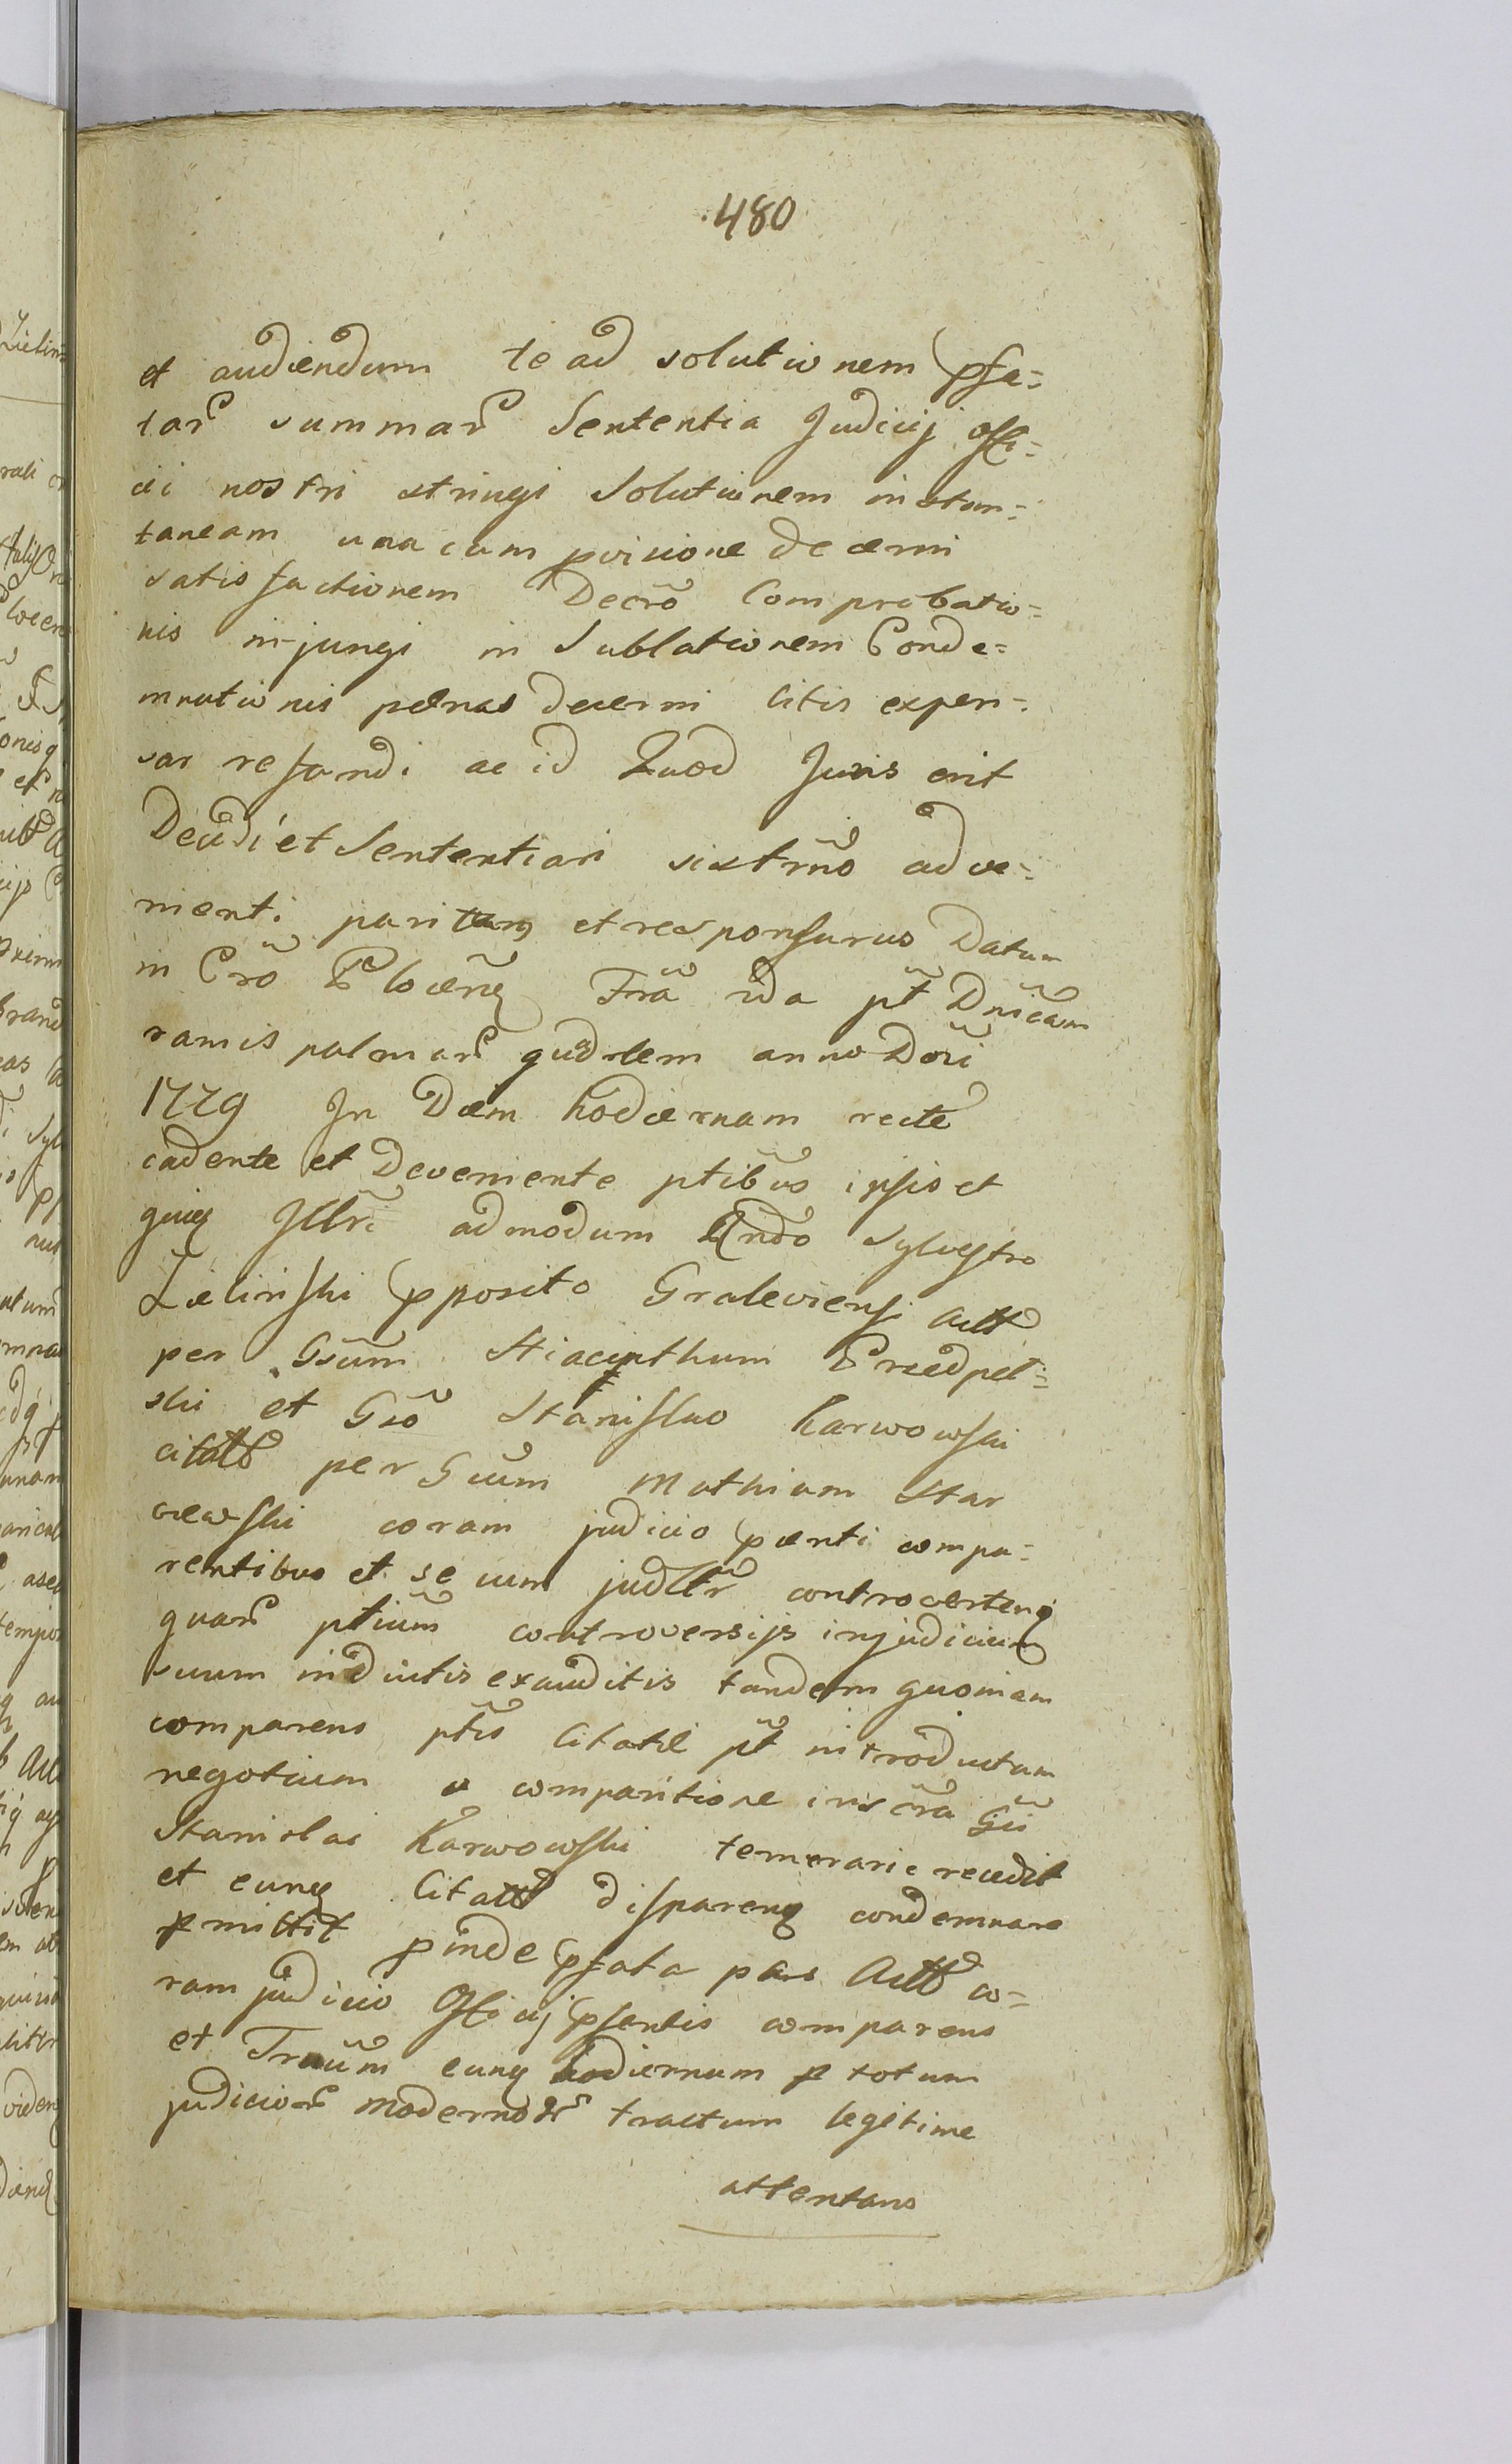 480
et audiendum te ad solutionem psa=
tar summar Sententia Judicij offi=
cii nostri stringi Solutionem instan=
taneam una cum pvisione decerni
satisfactionem Decrõ Comprobatio=
nis injungi in Sublationem Conde=
mnationis pœnas decerni litis expen=
sar refundi ac id Quod Juris erit
Decidi et Sententiari sistrmõ adve=
nienti pariturus et responsurus Datum
in Crõ Plocensi Fria 2da pt Dnicam
ramis palmar qudlem anno Dñi
1779 In Diem hodiernam recte
cadente et Deveniente ptibũs ipsis et
quieq Illri admodum Rndo Sylvestro
Zielinski Pposito Gralewiensi Actt
per Gsũm Hiacinthum Przedpel=
ski et Gsõ Stanislao Karwowski
citatt per Gsũm Mathiam Star
czewski coram judicio pœnti compa=
rentibus et se cum judltr controverteng
quar ptiũm controversijs in judicium
suum inductis exauditis tandem quoniam
comparens ptis Citatæ pt introductum
negotium a comparitione insrãa Gsi
Stanislai Karwowski temerarie recedit
et eunq Citatt dispareng condemnare
pmittit pinde psata pars Actt co=
ram judicio Officij psentis comparens
et Trnũm eunq hodiernum p totum
judicior modernor tractum legitime
attentans